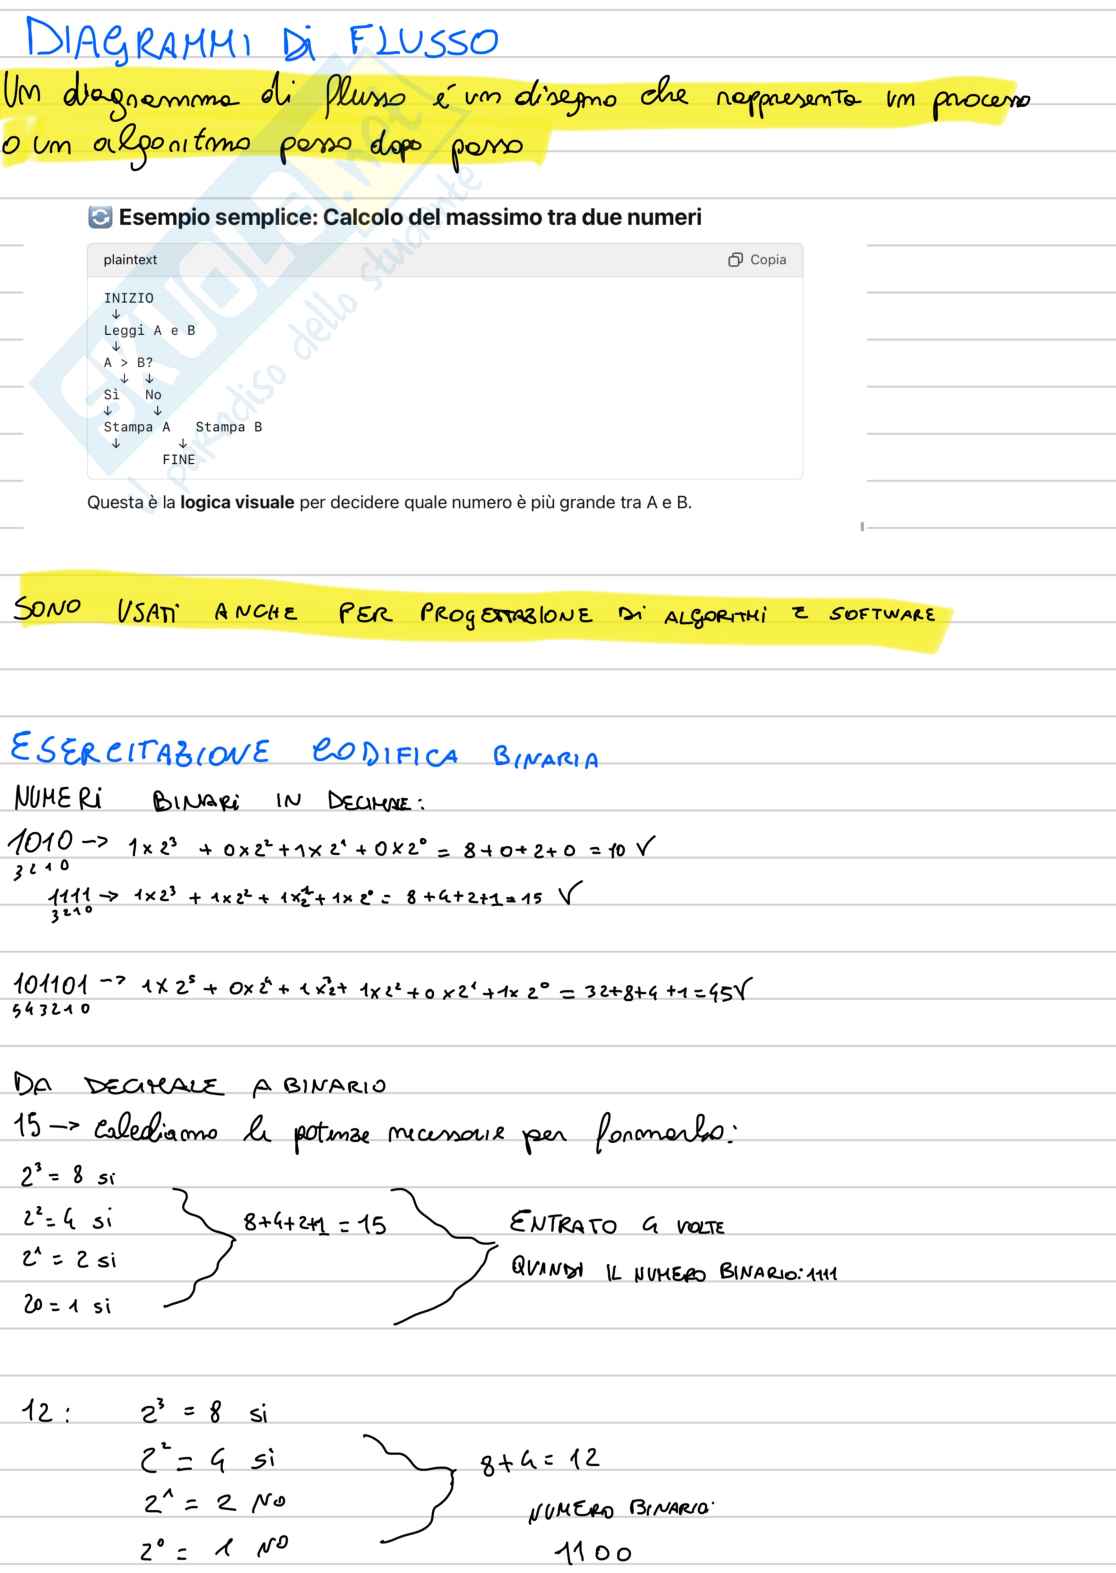 DIAGRAMMI Di FLUSSO
Un diagramma di flusso è un disegno che rappresenta un processo
o un algoritmo passo dopo passo
SKUOLA.net
Il paradiso dello studente
Esempio semplice: Calcolo del massimo tra due numeri
plaintext Copia
INIZIO
↓
Leggi A e B
↓
A > B?
↓ ↓
Sì No
↓ ↓
Stampa A Stampa B
↓ ↓
FINE
Questa è la logica visuale per decidere quale numero è più grande tra A e B.
SONO USATi ANCHE PER PROGETTAZIONE Di ALGORITMi E SOFTWARE
ESERCITAZIONE CODIFICA BINARIA
NUMERi BINARi IN DECIMALE:
1010 -> 1x2³ + 0x2² + 1x2¹ + 0x2⁰ = 8+0+2+0 = 10 √
3210
1111 -> 1x2³ + 1x2² + 1x2¹ + 1x2⁰ = 8+4+2+1 = 15 √
3210
101101 -> 1x2⁵ + 0x2⁴ + 1x2³ + 1x2² + 0x2¹ + 1x2⁰ = 32+8+4+1=45√
543210
DA DECIMALE A BINARIO
15 -> le potenze necessarie per formarlo:
2³ = 8 si
2² = 4 si
2¹ = 2 si
20 = 1 si
8+4+2+1 = 15
ENTRATO 4 VOLTE
QUINDI IL NUMERO BINARIO: 1111
12: 2³ = 8 si
2² = 4 si
2¹ = 2 NO
2⁰ = 1 NO
8+4 = 12
NUMERO BINARIO:
1100